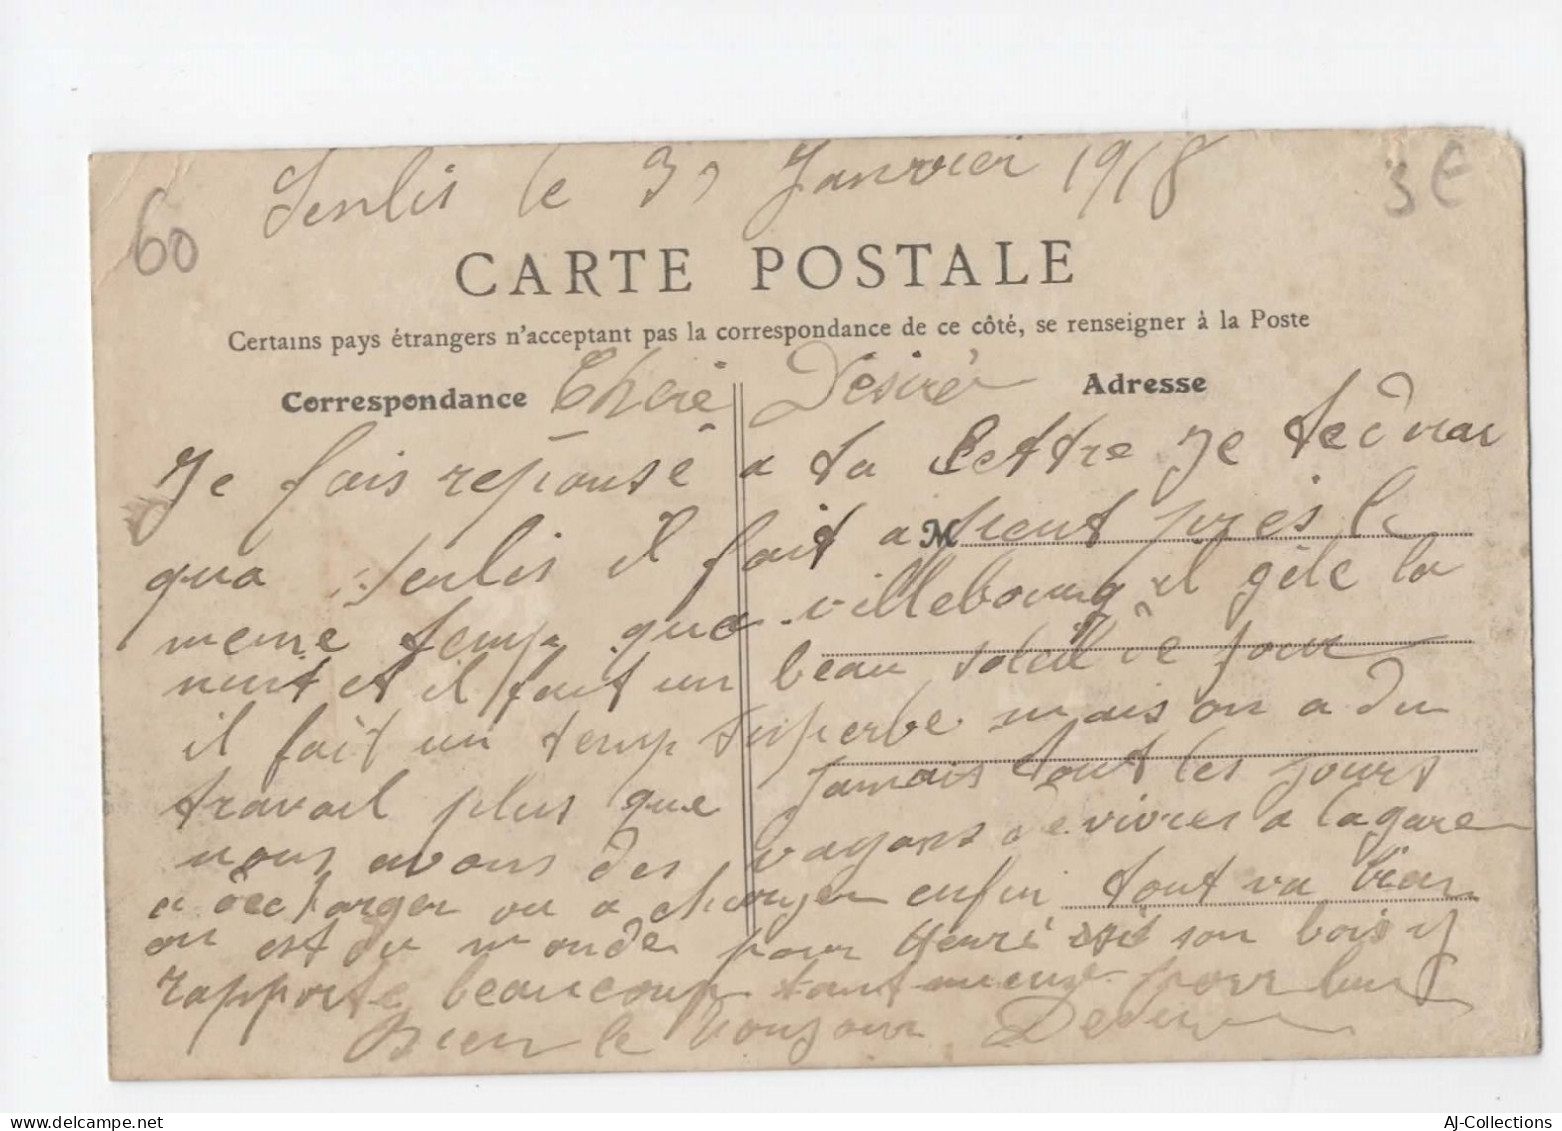 Senlis le 31 Janvier 1918
60
3 €
CARTE POSTALE
Certains pays étrangers n'acceptant pas la correspondance de ce côté, se renseigner à la Poste
Correspondance
Adresse
Cheré Désiré
Je fais reponse a ta Lettre Je te dirai
qua Senlis il fait a peut près le
M
meme temp qua villebourg il gèle la
nuit et il fait un beau soleil le jour
il fait un temp superbe mais on a du
travail plus que jamais tout les jours
nous avons des vagons de vivres a la gare
a decharger ou a charger enfin tout va bien
on est du monde pour Henri son bois
rapporte beaucoup tant mieux pour lui
Bien le bonjour
AJ-Collections